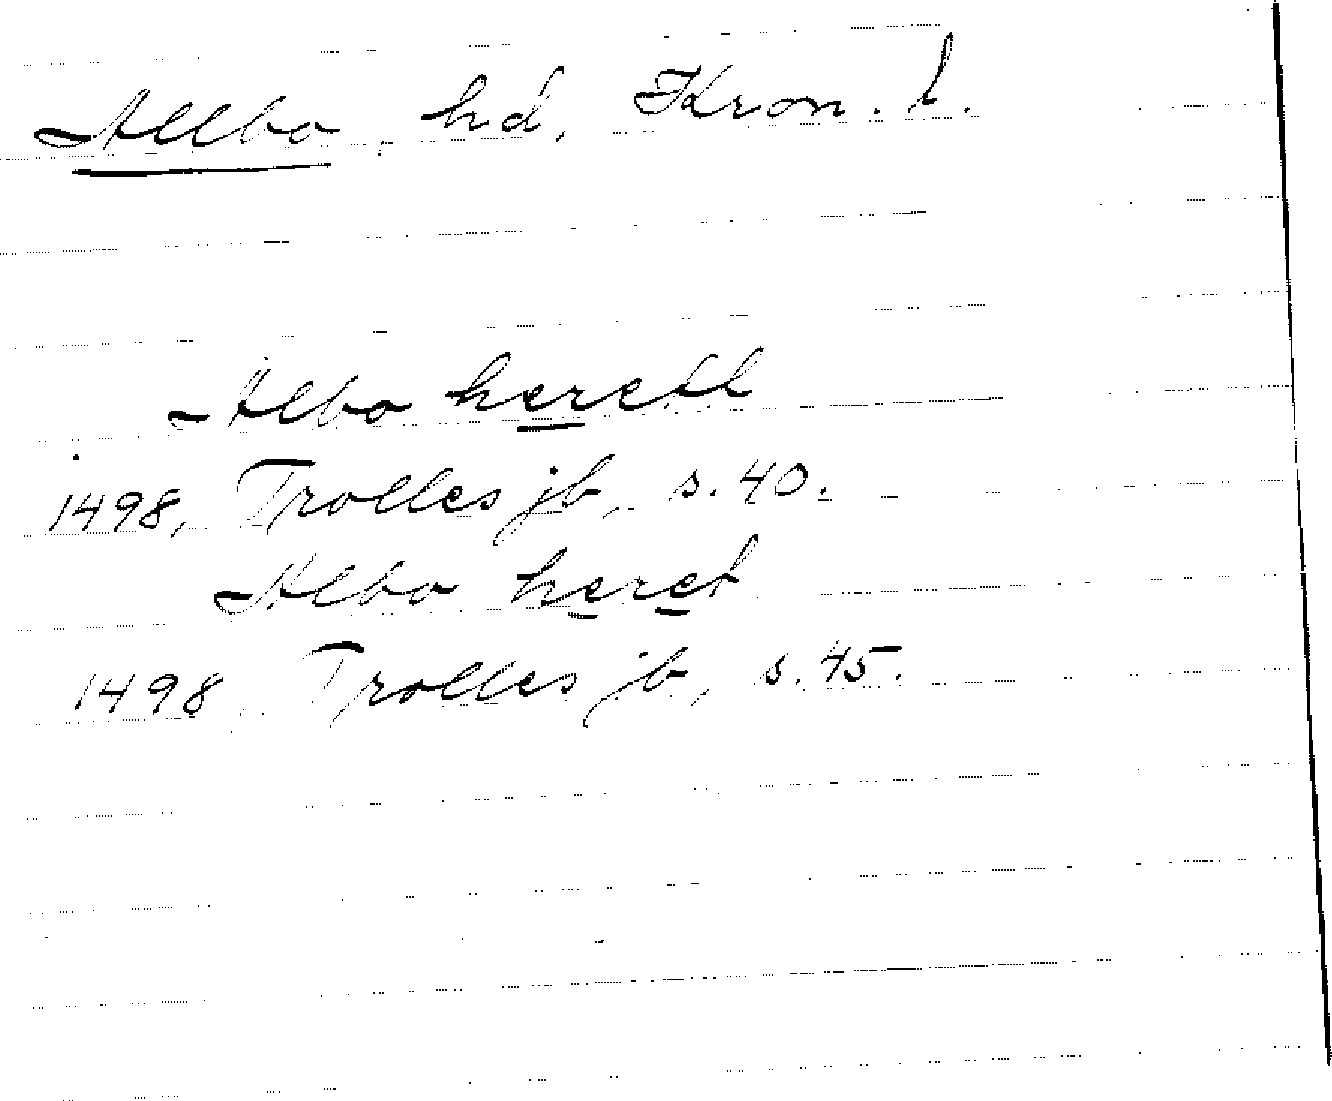 Allbo, hd, Kron. l.
Albo herett
1498, Trolles jb, s. 40.
Albo heret
1498 Trolles jb, s. 45.